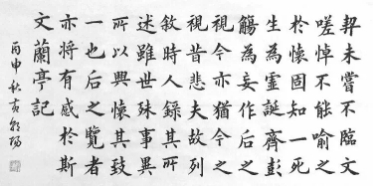 契未嘗不臨文
嗟悼不能喻之
於懷固知一死
生為虛誕齊彭
觴為妄作后之
視今亦猶今之
視昔悲夫故列
敘時人錄其所
述雖世殊事異
所以興懷其致
一也后之覽者
亦將有感於斯
文蘭亭記
丙申秋